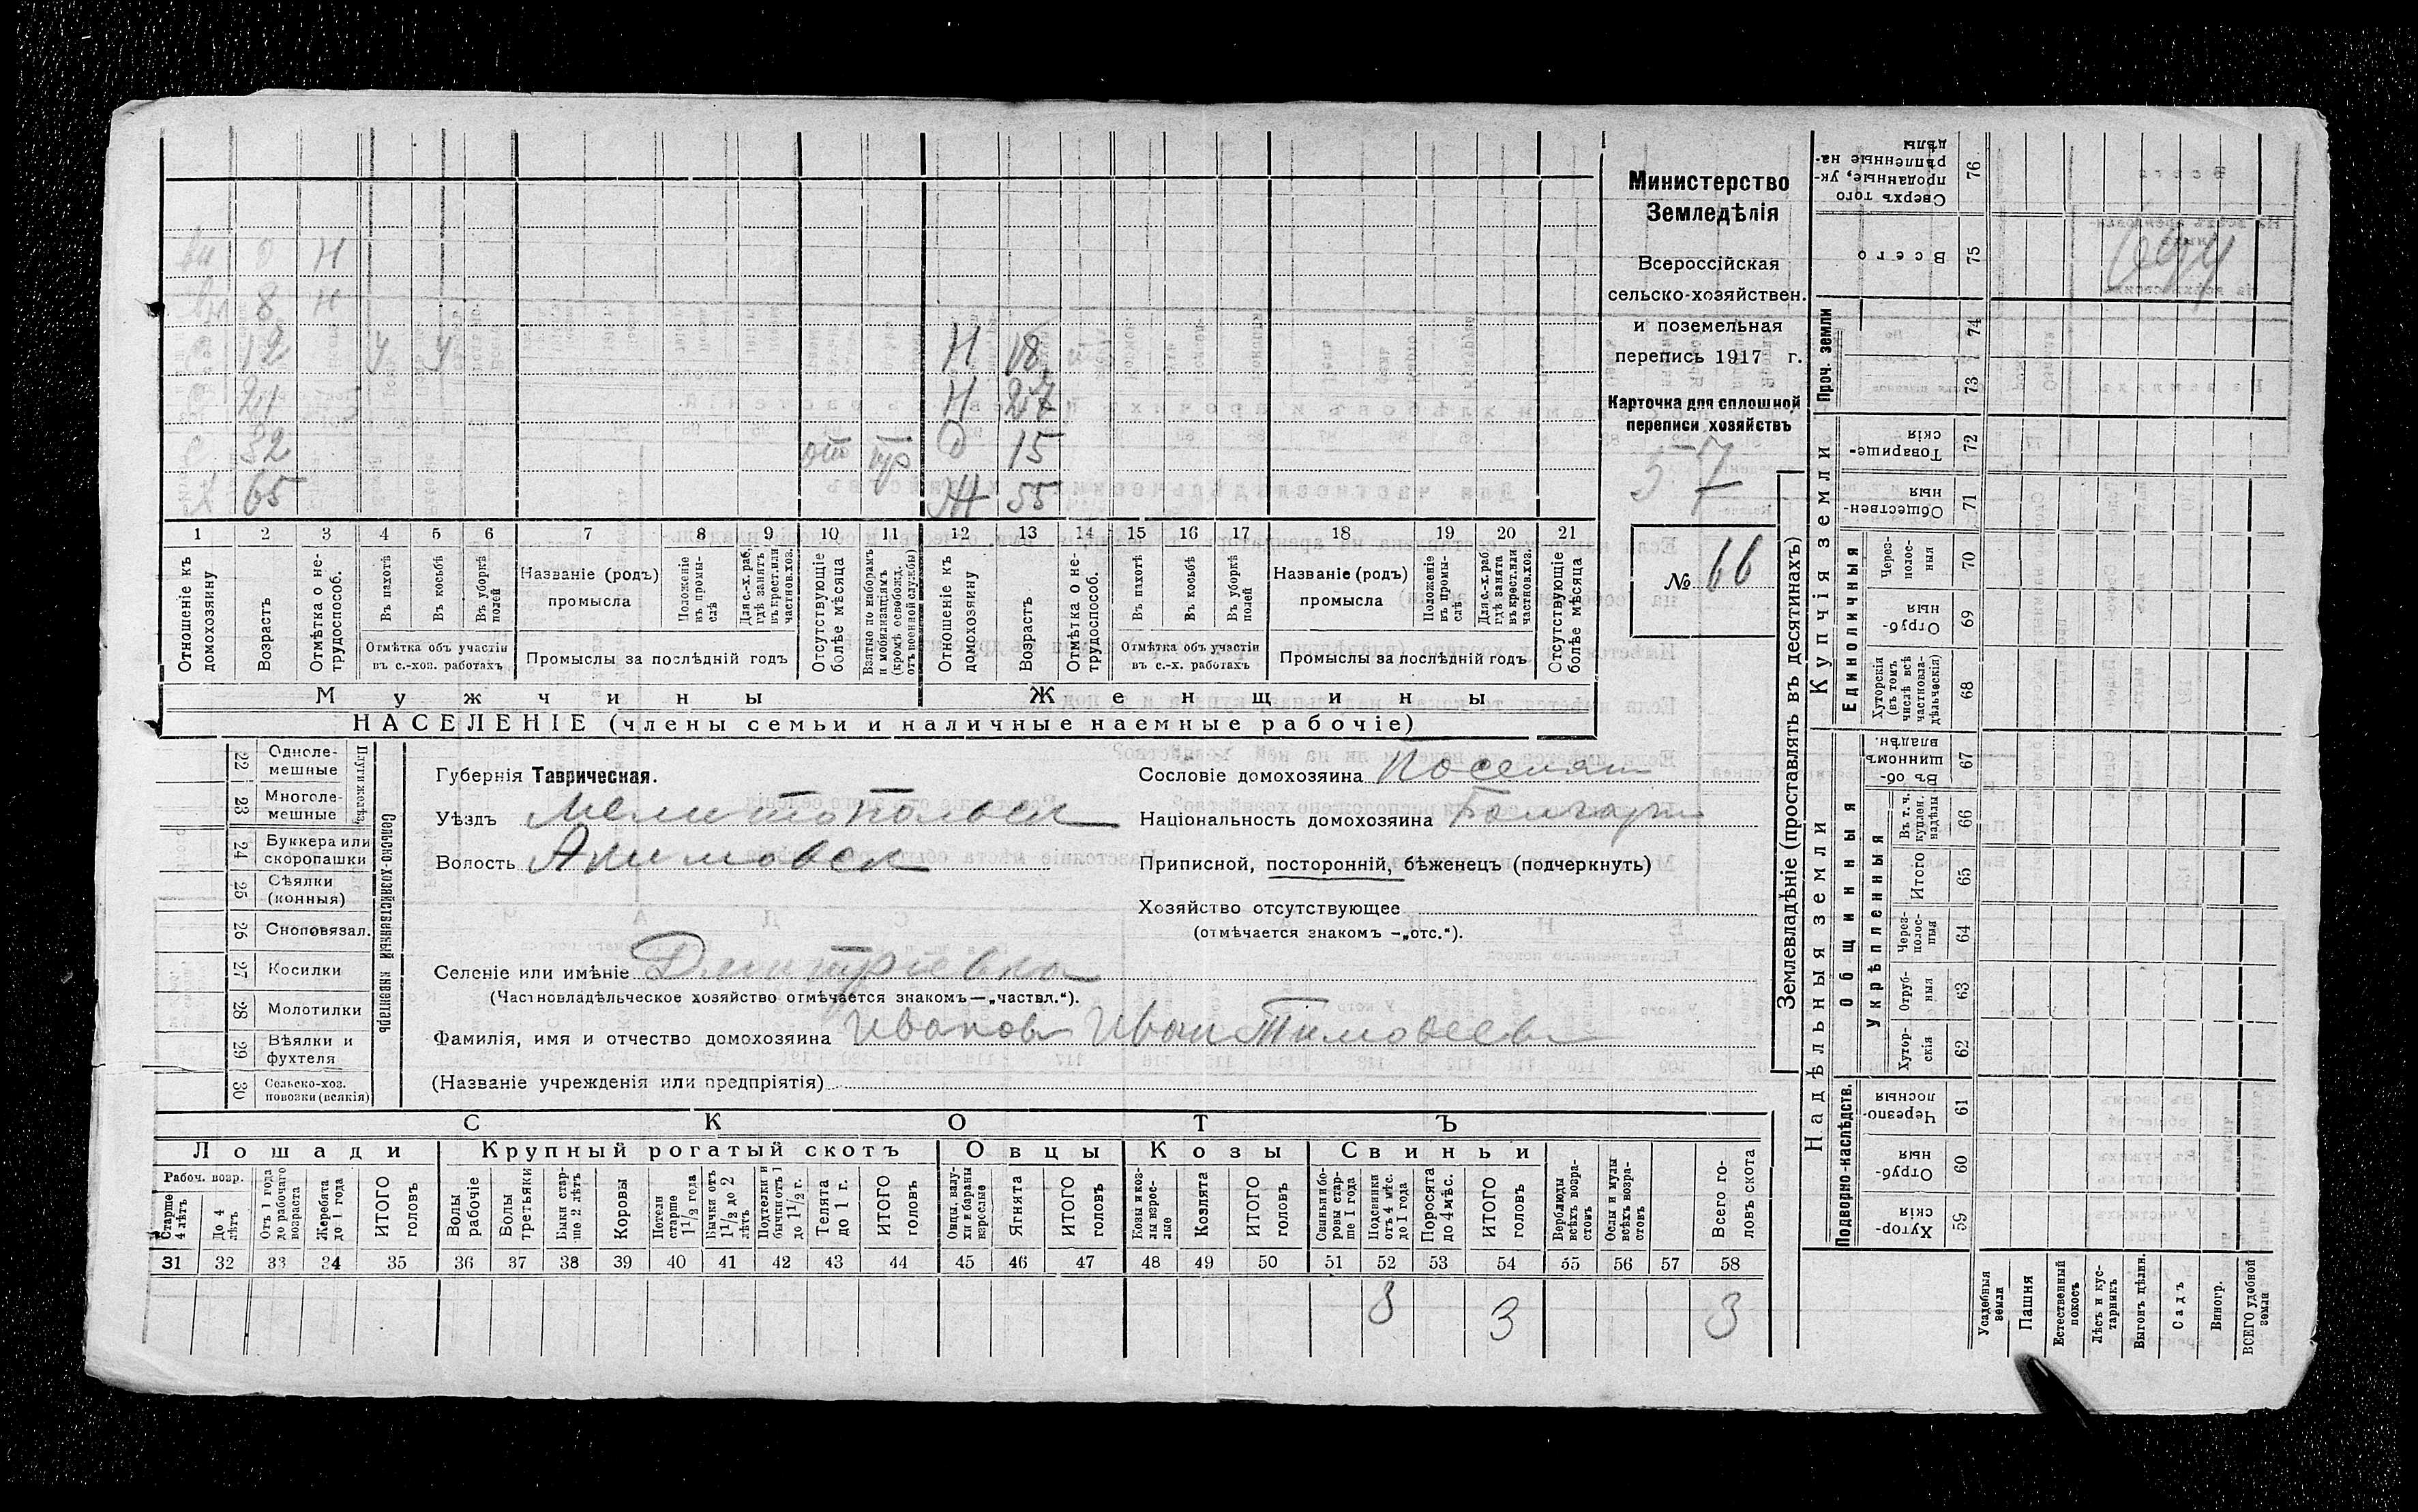 вн 8 н
С 12 Ч Ч Н 18
С 21 Н 27
С 32 отс Д 15
Х 65 Ж 55
1 2 3 4 5 6 7 8 9 10 11 12 13 14 15 16 17 18 19 20 21
Отношеніе къ домохозяину
Возрастъ
Отмѣтка о нетрудоспособ.
Въ пахотѣ
Въ косьбѣ
Въ уборкѣ полей
Отмѣтка объ участіи въ с.-хоз. работахъ
Названіе (родъ) промысла
Положеніе въ промыслѣ
Для с.-х. раб., гдѣ занятъ въ крест. или частнов. хоз.
Промыслы за послѣдній годъ
Отсутствующіе болѣе мѣсяца
Взятые по наборамъ и мобилизаціямъ (кромѣ освобожд. отъ военной службы)
Отношеніе къ домохозяину
Возрастъ
Отмѣтка о нетрудоспособ.
Въ пахотѣ
Въ косьбѣ
Въ уборкѣ полей
Отмѣтка объ участіи въ с.-х. работахъ
Названіе (родъ) промысла
Положеніе въ промыслѣ
Для с.-х. раб. гдѣ занята въ крест. или частнов. хоз.
Промыслы за послѣдній годъ
Отсутствующіе болѣе мѣсяца
Мужчины Женщины
НАСЕЛЕНІЕ (члены семьи и наличные наемные рабочіе)
Министерство
Земледѣлія
Всероссійская
сельско-хозяйствен.
и поземельная
перепись 1917 г.
Карточка для сплошной
переписи хозяйствъ
57
№ 66
22 Одноле-
мешные
23 Многоле-
мешные
24 Буккера или
скоропашки
25 Сѣялки
(конныя)
26 Сноповязал.
27 Косилки
28 Молотилки
29 Вѣялки и
фухтеля
30 Сельско-хоз.
повозки (всякія)
Сельско-хозяйственный инвентарь
Губернія Таврическая.
Уѣздъ Мелитопольск
Волость Акимовск
Селеніе или имѣніе Дмитріевка
(Частновладѣльческое хозяйство отмѣчается знакомъ—„частвл.“).
Фамилія, имя и отчество домохозяина Ивановъ Иван Тимофеев
(Названіе учрежденія или предпріятія)
Сословіе домохозяина Поселян
Національность домохозяина Болгарин
Приписной, посторонній, бѣженецъ (подчеркнуть)
Хозяйство отсутствующее
(отмѣчается знакомъ -„отс.“).
СКОТЪ
Лошади Крупный рогатый скотъ Овцы Козы Свиньи
Рабоч. возр.
Старше 4 лѣтъ
До 4 лѣтъ
Отъ 1 года до рабочаго возраста
Жеребята до 1 года
ИТОГО головъ
Волы рабочіе
Волы третьяки
Быки старше 2 лѣтъ
Коровы
Нетели старше 1 1/2 года
Бычки отъ 1 1/2 до 2 лѣтъ
Подтелки и бычки отъ 1 до 1 1/2 г.
Телята до 1 г.
ИТОГО головъ
Овцы, валухи и бараны взрослые
Ягнята
ИТОГО головъ
Козы и козлы взрослые
Козлята
ИТОГО головъ
Свиньи и боровы старше 1 года
Подсвинки отъ 4 мѣс. до 1 года
Поросята до 4 мѣс.
ИТОГО головъ
Верблюды всѣхъ возрастовъ
Ослы и мулы всѣхъ возрастовъ
Всего головъ скота
31 32 33 34 35 36 37 38 39 40 41 42 43 44 45 46 47 48 49 50 51 52 53 54 55 56 57 58
3 3 3
Землевладѣніе (проставлять въ десятинахъ)
Надѣльныя земли Купчія земли Проч. земли
Подворно-наслѣдств. Общинныя Единоличныя
Укрѣпленныя
Сверхъ того проданные, укрѣпленные надѣлы 76
Всего 75
74
73
Товарищескія 72
Общественныя 71
Черезполосныя 70
Отрубныя 69
Хуторскія (въ томъ числѣ всѣ частновладѣльческія) 68
Въ общинномъ владѣн. 67
Въ т. ч. куплен. надѣлы 66
Итого 65
Черезполосныя 64
Отрубныя 63
Хуторскія 62
Черезполосныя 61
Отрубныя 60
Хуторскія 59
Усадебныя земли
Пашня
Естественный покосъ
Лѣсъ и кустарникъ
Выгонъ цѣлин.
Садъ
Виногр.
ВСЕГО удобной земли